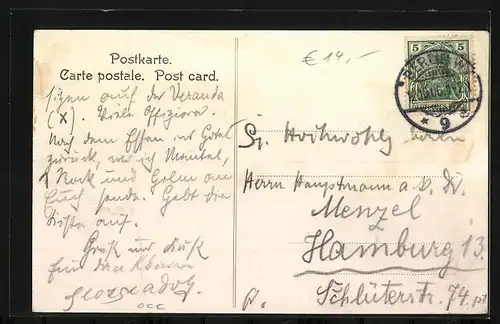 Postkarte.
Carte postale. Post card.
€ 14,-
5
5
sitzen auf der Veranda
(X). Viele Offiziere.
Nach dem Essen ins Hotel
zurück, wo ich Mantel,
Rock und
Euch sende. Gebt die
Kiste auf.
Gruß und Kuß
Georg
occ
9
Sr. Hochwohlgeboren
Herrn Hauptmann a. D.
Menzel
Hamburg 13.
Schlüterstr. 74. pt